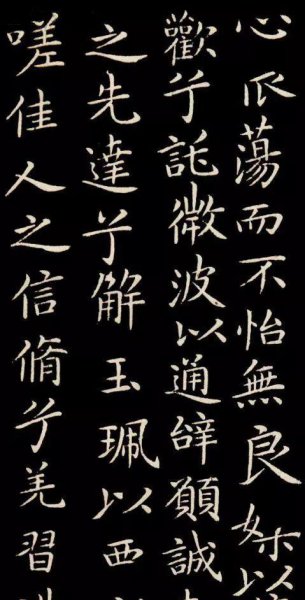 心蕩而不怡無良媒以
歡兮託微波以通辭願誠
之先達兮解玉珮以要
嗟佳人之信脩兮羌習